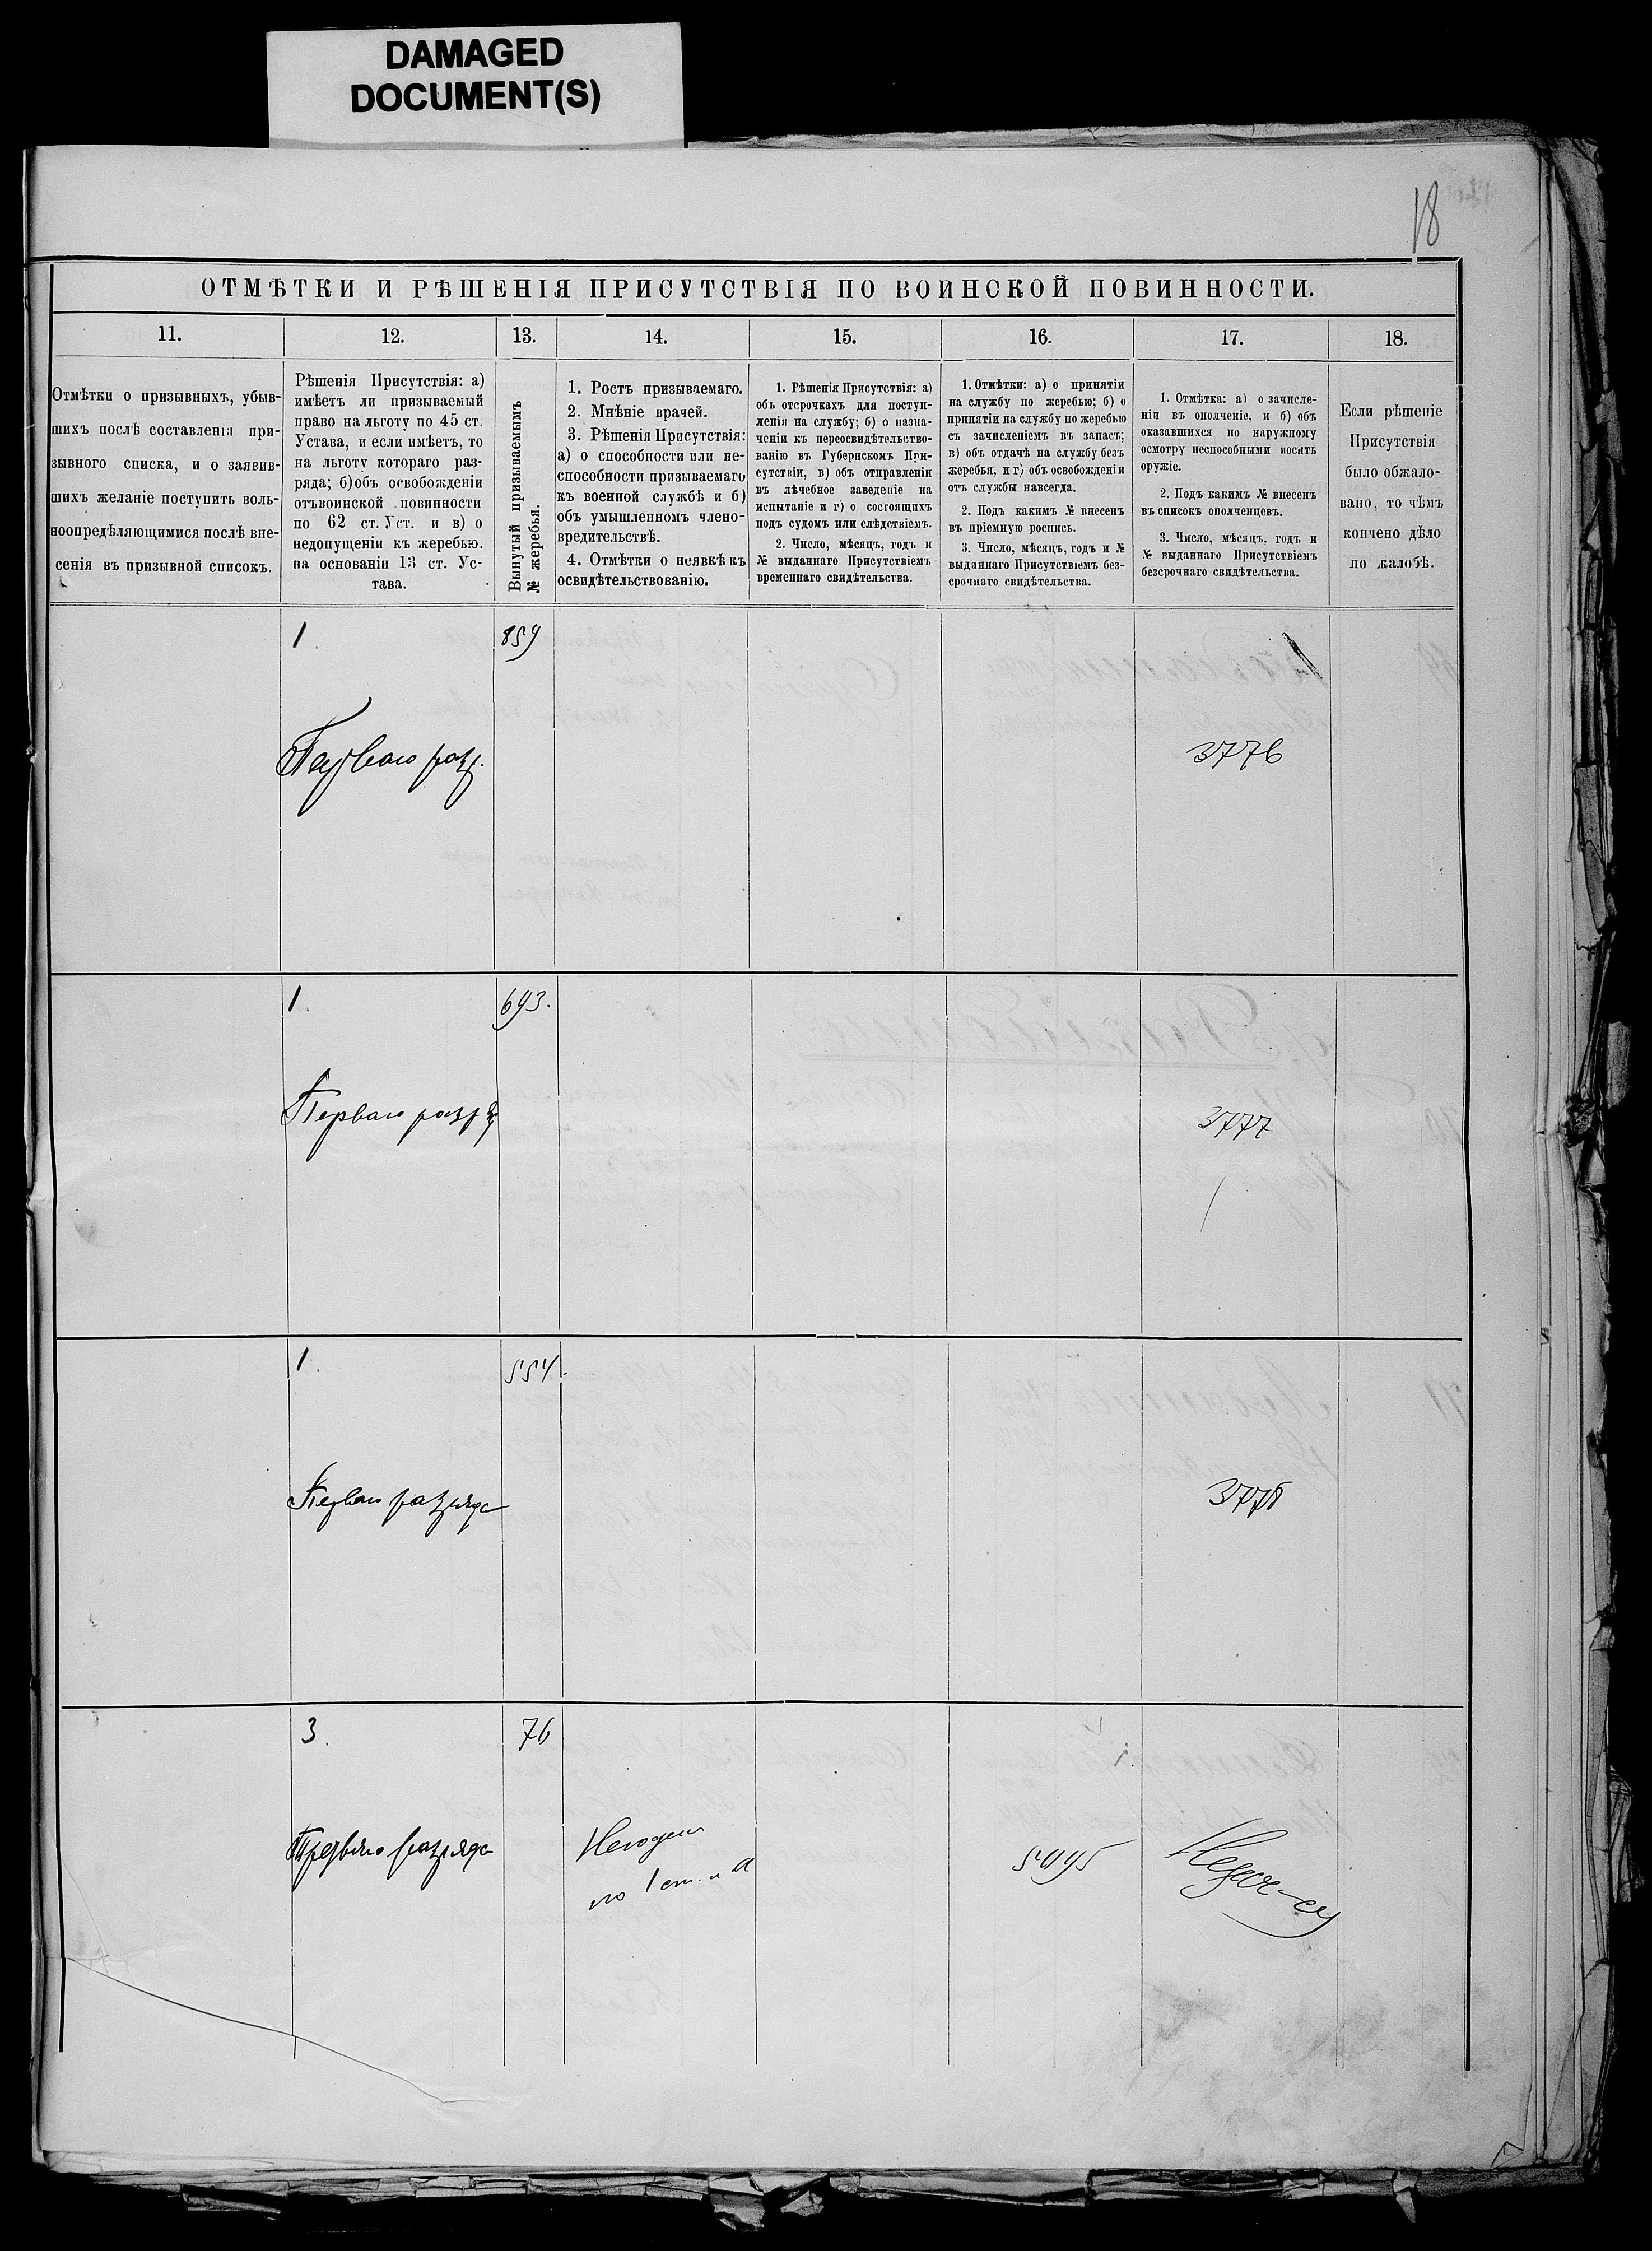 DAMAGED
DOCUMENT(S)
18
ОТМѢТКИ И РѢШЕНІЯ ПРИСУТСТВІЯ ПО ВОИНСКОЙ ПОВИННОСТИ.
11.
12.
13.
14.
15.
16.
17.
18.
Отмѣтки о призывныхъ, убыв-
шихъ послѣ составленія при-
зывного списка, и о заявив-
шихъ желаніе поступить воль-
ноопредѣляющимися послѣ вне-
сенія въ призывной списокъ.
Рѣшенія Присутствія: а)
имѣетъ ли призываемый
право на льготу по 45 ст.
Устава, и если имѣетъ, то
на льготу котораго раз-
ряда; б) объ освобожденіи
отъ воинской повинности
по 62 ст. Уст. и в) о
недопущеніи къ жеребью.
на основаніи 13 ст. Ус-
тава.
Вынутый призываемымъ
№ жеребья.
1. Ростъ призываемаго.
2. Мнѣніе врачей.
3. Рѣшенія Присутствія:
а) о способности или не-
способности призываемаго
къ военной службѣ и б)
объ умышленномъ члено-
вредительствѣ.
4. Отмѣтки о неявкѣ къ
освидѣтельствованію.
1. Рѣшенія Присутствія: а)
объ отсрочкахъ для поступ-
ленія на службу; б) о назна-
ченіи къ переосвидѣтельство-
ванію въ Губернскомъ При-
сутствіи, в) объ отправленіи
въ лѣчебное заведеніе на
испытаніе и г) о состоящихъ
подъ судомъ или слѣдствіемъ.
2. Число, мѣсяцъ, годъ и
№ выданнаго Присутствіемъ
временнаго свидѣтельства.
1. Отмѣтки: а) о принятіи
на службу по жеребью; б) о
принятіи на службу по жеребью
съ зачисленіемъ въ запасъ;
в) объ отдачѣ на службу безъ
жеребья, и г) объ освобожденіи
отъ службы навсегда.
2. Подъ какимъ № внесенъ
въ пріемную роспись.
3. Число, мѣсяцъ, годъ и №
выданнаго Присутствіемъ без-
срочнаго свидѣтельства.
1. Отмѣтка: а) о зачисле-
ніи въ ополченіе, и б) объ
оказавшихся по наружному
осмотру неспособными носить
оружіе.
2. Подъ какимъ № внесенъ
въ список ополченцевъ.
3. Число, мѣсяцъ, годъ и
№ выданнаго Присутствіемъ
безсрочнаго свидѣтельства.
Если рѣшеніе
Присутствія
было обжало-
вано, то чѣмъ
кончено дѣло
по жалобѣ.
1
859
Перваго разр.
3776
1.
693.
Перваго разряд
3777
1.
554.
Перваго разряда
3778
3.
76
Третьяго разряда
Негоденъ
по 1 ст. л. А
5495